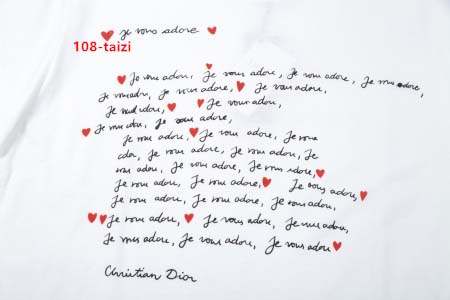 Je vous adore
108-taizi
Je vous adore, Je vous adore, Je vous adore, Je vous adore,
Je vous adore, Je vous adore, Je vous adore,
Je vous adore, Je vous adore,
Je vous adore, Je vous adore,
Je vous adore, Je vous adore, Je vous
adore, Je vous adore, Je vous adore, Je
vous adore, Je vous adore, Je vous adore,
Je vous adore, Je vous adore, Je vous adore,
Je vous adore, Je vous adore, Je vous adore,
Je vous adore, Je vous adore, Je vous adore,
Je vous adore, Je vous adore, Je vous adore
Christian Dior